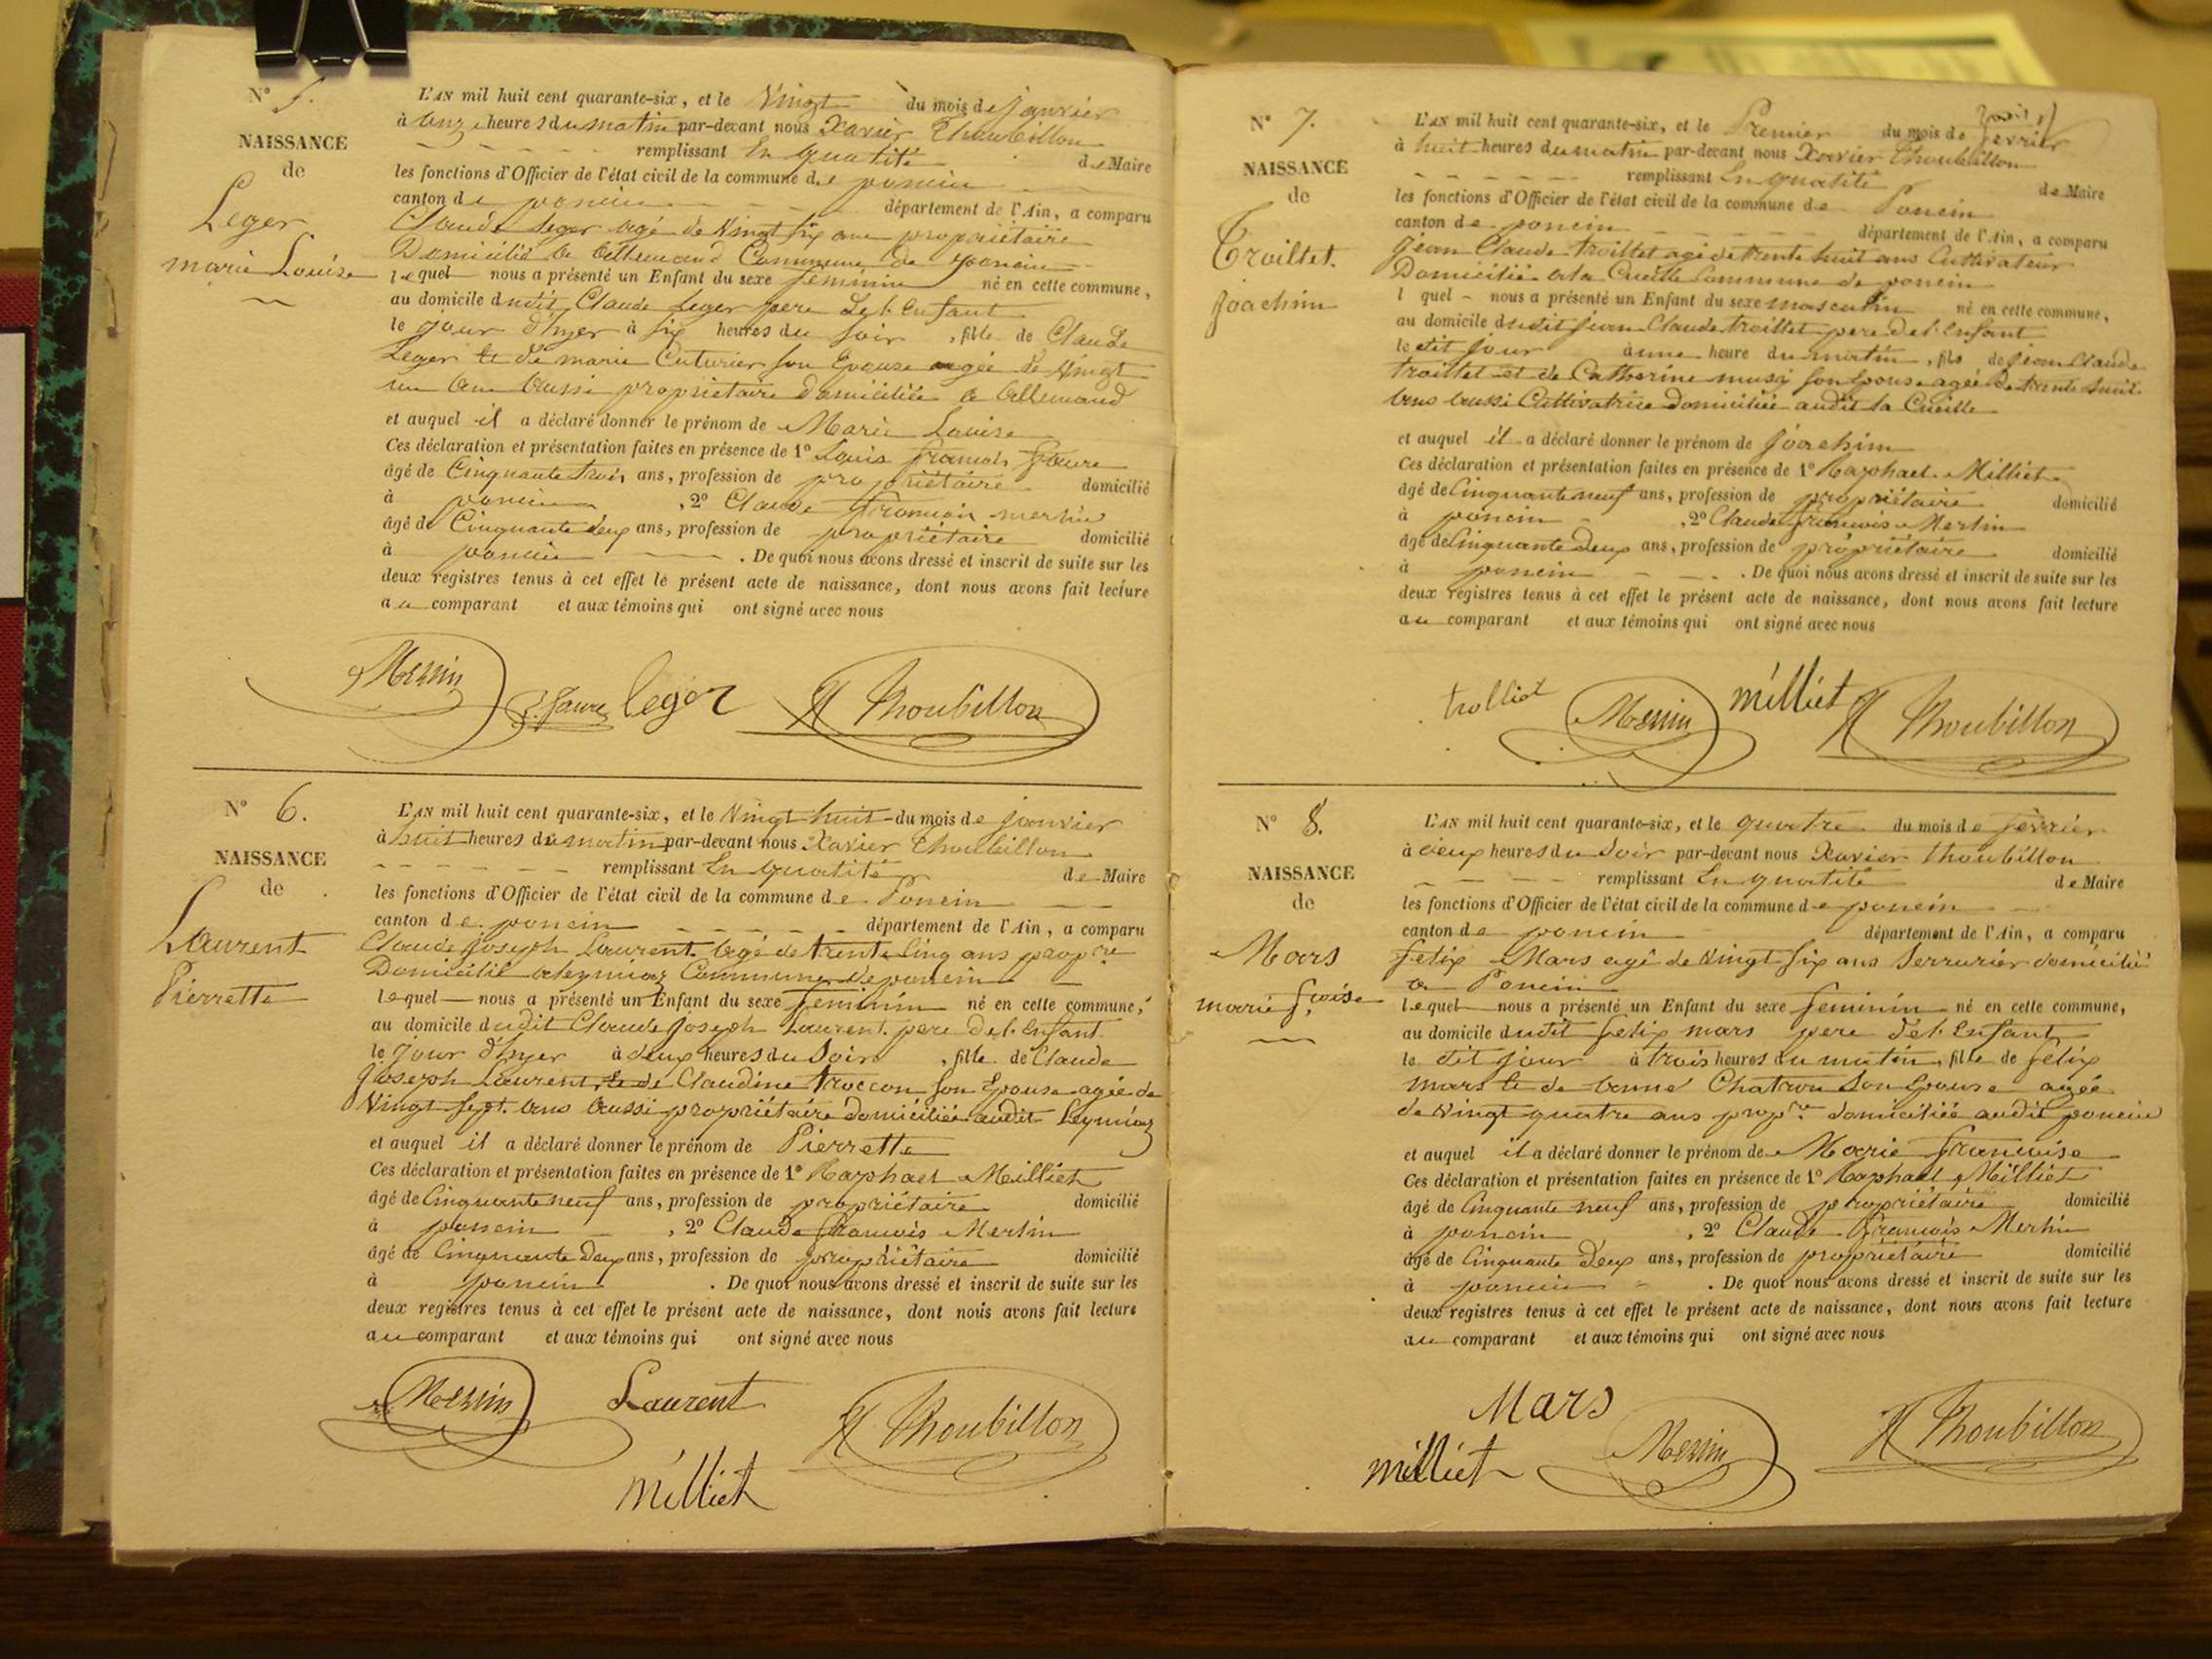 N° 5.
NAISSANCE
de
Leger
marie Louise
L'AN mil huit cent quarante-six, et le Vingt du mois de janvier
à onze heures du matin par-devant nous Xavier Thoubillon
remplissant En qualité de Maire
les fonctions d'Officier de l'état civil de la commune de poncin
canton de poncin département de l'Ain, a comparu
Claude Leger agé de Vingt six ans propriétaire
Domicilié a allemand Commune de poncin
lequel nous a présenté un Enfant du sexe féminin né en cette commune,
au domicile dudit Claude Leger pere de l'enfant
le jour d'hyer à six heures du soir, fille de Claude
Leger et de marie Cuturier son Epouse agée de Vingt
un ans aussi propriétaire domiciliée a allemand
et auquel il a déclaré donner le prénom de Marie Louise
Ces déclaration et présentation faites en présence de 1° Louis françois faure
âgé de Cinquante trois ans, profession de propriétaire domicilié
à poncin, 2° Claude françois merlin
âgé de Cinquante deux ans, profession de propriétaire domicilié
à poncin. De quoi nous avons dressé et inscrit de suite sur les
deux registres tenus à cet effet le présent acte de naissance, dont nous avons fait lecture
au comparant et aux témoins qui ont signé avec nous
Merlin faure leger Thoubillon
N° 6.
NAISSANCE
de
Laurent
Pierrette
L'AN mil huit cent quarante-six, et le Vingt huit du mois de janvier
à huit heures du matin par-devant nous Xavier Thoubillon
remplissant En qualité de Maire
les fonctions d'Officier de l'état civil de la commune de Poncin
canton de poncin département de l'Ain, a comparu
Claude joseph Laurent agé de trente cinq ans propre
Domicilié a leymiaz Commune de poncin
lequel nous a présenté un Enfant du sexe feminin né en cette commune,
au domicile dudit Claude joseph Laurent pere de l'enfant
le jour d'hyer à deux heures du Soir, fille de Claude
joseph Laurent, et de Claudine troccon son Epouse agée de
Vingt sept ans aussi propriétaire domiciliée audit leymiaz
et auquel il a déclaré donner le prénom de Pierrette
Ces déclaration et présentation faites en présence de 1° Raphael Milliet
âgé de Cinquante neuf ans, profession de propriétaire domicilié
à poncin, 2° Claude françois Merlin
âgé de Cinquante Deux ans, profession de propriétaire domicilié
à poncin. De quoi nous avons dressé et inscrit de suite sur les
deux registres tenus à cet effet le présent acte de naissance, dont nous avons fait lecture
au comparant et aux témoins qui ont signé avec nous
Merlin Laurent Thoubillon
milliet
N° 7.
NAISSANCE
de
Troillet.
joachim
L'AN mil huit cent quarante-six, et le Premier du mois de fevrier
à huit heures du matin par-devant nous Xavier Thoubillon
remplissant En qualité de Maire
les fonctions d'Officier de l'état civil de la commune de Poncin
canton de poncin département de l'Ain, a comparu
jean Claude troillet agé de trente huit ans Cultivateur
Domicilié a la Cueille Commune de poncin
l quel nous a présenté un Enfant du sexe masculin né en cette commune,
au domicile dudit jean Claude troillet pere de l'enfant
le dit jour à une heure du matin, fils de jean Claude
troillet et de Catherine musy son Epouse agée de trente huit
ans aussi Cultivatrice domiciliée audit la Cueille
et auquel il a déclaré donner le prénom de joachim
Ces déclaration et présentation faites en présence de 1° Raphael Milliet
âgé de Cinquante neuf ans, profession de propriétaire domicilié
à poncin, 2° Claude françois Merlin
âgé de Cinquante Deux ans, profession de propriétaire domicilié
à poncin. De quoi nous avons dressé et inscrit de suite sur les
deux registres tenus à cet effet le présent acte de naissance, dont nous avons fait lecture
au comparant et aux témoins qui ont signé avec nous
trolliet Merlin milliet Thoubillon
N° 8.
NAISSANCE
de
Mars
marie f.çoise
L'AN mil huit cent quarante-six, et le quatre du mois de fevrier
à deux heures du Soir par-devant nous Xavier Thoubillon
remplissant En qualité de Maire
les fonctions d'Officier de l'état civil de la commune de poncin
canton de poncin département de l'Ain, a comparu
felix Mars agé de Vingt six ans Serrurier domicilié
a Poncin
lequel nous a présenté un Enfant du sexe feminin né en cette commune,
au domicile dudit felix mars pere de l'Enfant
le dit jour à trois heures du matin, fille de felix
mars et de anne Chatron son Epouse agée
de Vingt quatre ans propre domiciliée audit poncin
et auquel il a déclaré donner le prénom de Marie françoise
Ces déclaration et présentation faites en présence de 1° Raphael Milliet
âgé de Cinquante neuf ans, profession de propriétaire domicilié
à poncin, 2° Claude françois Merlin
âgé de Cinquante Deux ans, profession de propriétaire domicilié
à poncin. De quoi nous avons dressé et inscrit de suite sur les
deux registres tenus à cet effet le présent acte de naissance, dont nous avons fait lecture
au comparant et aux témoins qui ont signé avec nous
Mars
milliet Merlin Thoubillon